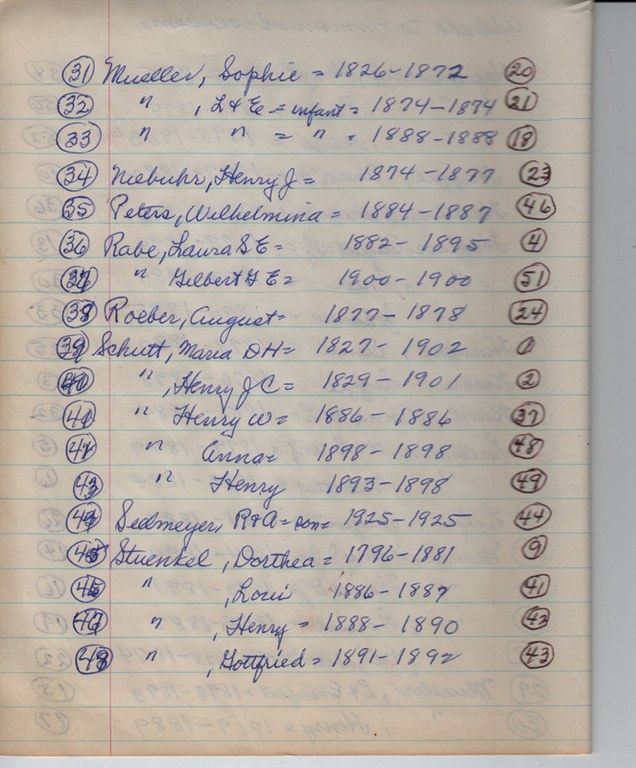 31 Mueller, Sophie = 1826-1872 20
32 " , L & E = infant = 1874-1874 21
33 " " = " = 1888-1888 18
34 Niebuhr, Henry J = 1874-1877 23
35 Peters, Wilhelmina = 1884-1887 46
36 Rabe, Laura S E = 1882-1895 4
37 " Gilbert F E = 1900-1900 51
38 Roeber, August = 1877-1878 24
39 Schutt, Maria D H = 1827-1902 1
40 " , Henry J C = 1829-1901 2
41 " Henry W = 1886-1886 37
42 " Anna = 1898-1898 48
43 " Henry 1893-1898 49
44 Sedmeyer, R & A = son = 1925-1925 44
45 Stuenkel, Dorthea = 1796-1881 9
46 " , Loui 1886-1887 41
47 " , Henry = 1888-1890 42
48 " , Gottfried = 1891-1892 43